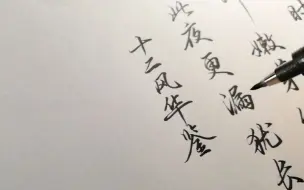 时
嫩
此夜更漏犹长
十二风华鉴